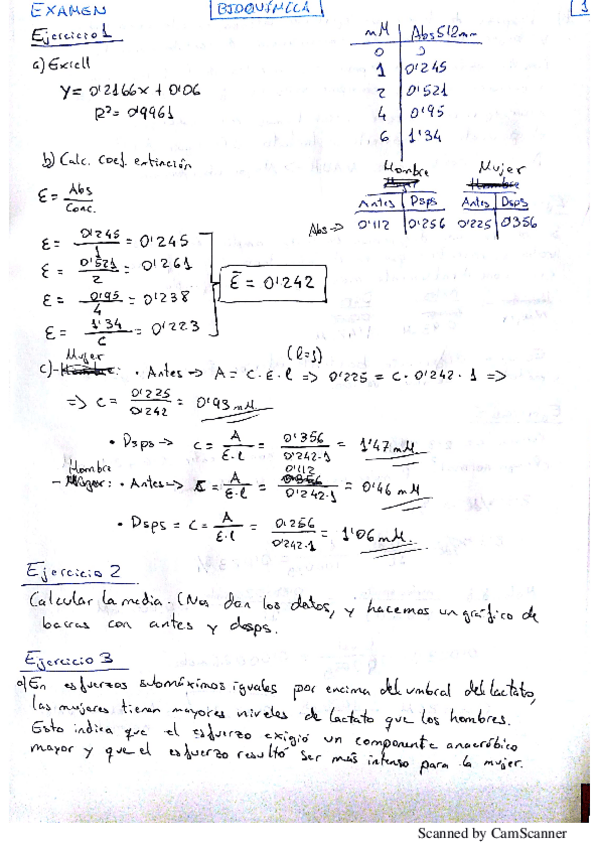 EXAMEN
BIOQUÍMICA
1
Ejercicio 1
a) Excell
Y= 0'2166x + 0'06
R²= 0'9961
mM | Abs 512nm
0 | 0
1 | 0'245
2 | 0'521
4 | 0'95
6 | 1'34
b) Calc. coef. extinción
ε = Abs / Conc.
Hombre Mujer
Antes | Dsps Antes | Dsps
Abs -> 0'112 | 0'256 0'225 | 0'356
ε = 0'245 / 1 = 0'245
ε = 0'521 / 2 = 0'261
ε = 0'95 / 4 = 0'238
ε = 1'34 / 6 = 0'223
ε̄ = 0'242
(l=1)
Mujer
c)- Hombre: • Antes -> A = C·ε·l => 0'225 = C·0'242·1 =>
=> C = 0'225 / 0'242 = 0'93 mM
• Dsps -> C = A / ε·l = 0'356 / 0'242·1 = 1'47 mM
Hombre
- Mujer: • Antes -> C = A / ε·l = 0'112 / 0'242·1 = 0'46 mM
• Dsps = C = A / ε·l = 0'256 / 0'242·1 = 1'06 mM
Ejercicio 2
Calcular la media. (Nos dan los datos, y hacemos un gráfico de
barras con antes y dsps.
Ejercicio 3
a) En esfuerzos submáximos iguales por encima del umbral del lactato,
las mujeres tienen mayores niveles de lactato que los hombres.
Esto indica que el esfuerzo exigió un componente anaeróbico
mayor y que el esfuerzo resultó ser más intenso para la mujer.
Scanned by CamScanner